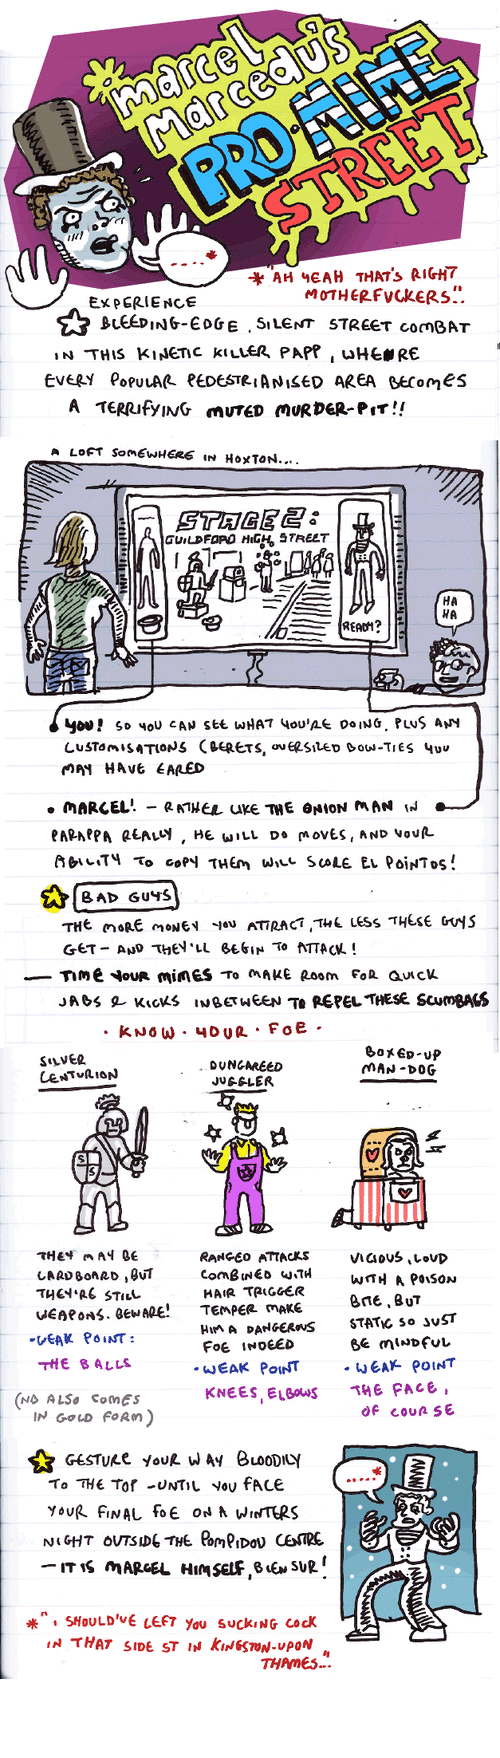 marcel
Marcedu's
PRO·MIME
STREET
.....*
* "AH YEAH THAT'S RIGHT
MOTHERFUCKERS"..
EXPERIENCE
BLEEDING-EDGE, SILENT STREET COMBAT
IN THIS KINETIC KILLER PAPP, WHERE
EVERY POPULAR PEDESTRIANISED AREA BECOMES
A TERRIFYING MUTED MURDER-PIT!!
A LOFT SOMEWHERE IN HOXTON....
STAGE 2:
GUILDFORD HIGH STREET
READY?
HA
HA
• YOU! SO YOU CAN SEE WHAT YOU'RE DOING, PLUS ANY
CUSTOMISATIONS (BERETS, OVERSIZED BOW-TIES YOU
MAY HAVE EARED
• MARCEL! - RATHER LIKE THE ONION MAN IN
PARAPPA REALLY, HE WILL DO MOVES, AND YOUR
ABILITY TO COPY THEM WILL SCORE EL POINTOS!
BAD GUYS
THE MORE MONEY YOU ATTRACT, THE LESS THESE GUYS
GET - AND THEY'LL BEGIN TO ATTACK!
— TIME YOUR MIMES TO MAKE ROOM FOR QUICK
JABS & KICKS INBETWEEN TO REPEL THESE SCUMBAGS
· KNOW · YOUR · FOE ·
SILVER
CENTURION
DUNGAREED
JUGGLER
BOXED-UP
MAN-DOG
S
S
THEY MAY BE
CARDBOARD, BUT
THEY'RE STILL
WEAPONS. BEWARE!
• WEAK POINT:
THE BALLS
(NB ALSO COMES
IN GOLD FORM)
RANGED ATTACKS
COMBINED WITH
HAIR TRIGGER
TEMPER MAKE
HIM A DANGEROUS
FOE INDEED
• WEAK POINT
KNEES, ELBOWS
VICIOUS, LOUD
WITH A POISON
BITE, BUT
STATIC SO JUST
BE MINDFUL
• WEAK POINT
THE FACE,
OF COURSE
GESTURE YOUR WAY BLOODILY
TO THE TOP - UNTIL YOU FACE
YOUR FINAL FOE ON A WINTERS
NIGHT OUTSIDE THE POMPIDOU CENTRE
— IT IS MARCEL HIMSELF, BIEN SUR!
.....*
* "I SHOULD'VE LEFT YOU SUCKING COCK
IN THAT SIDE ST IN KINGSTON-UPON
THAMES..."